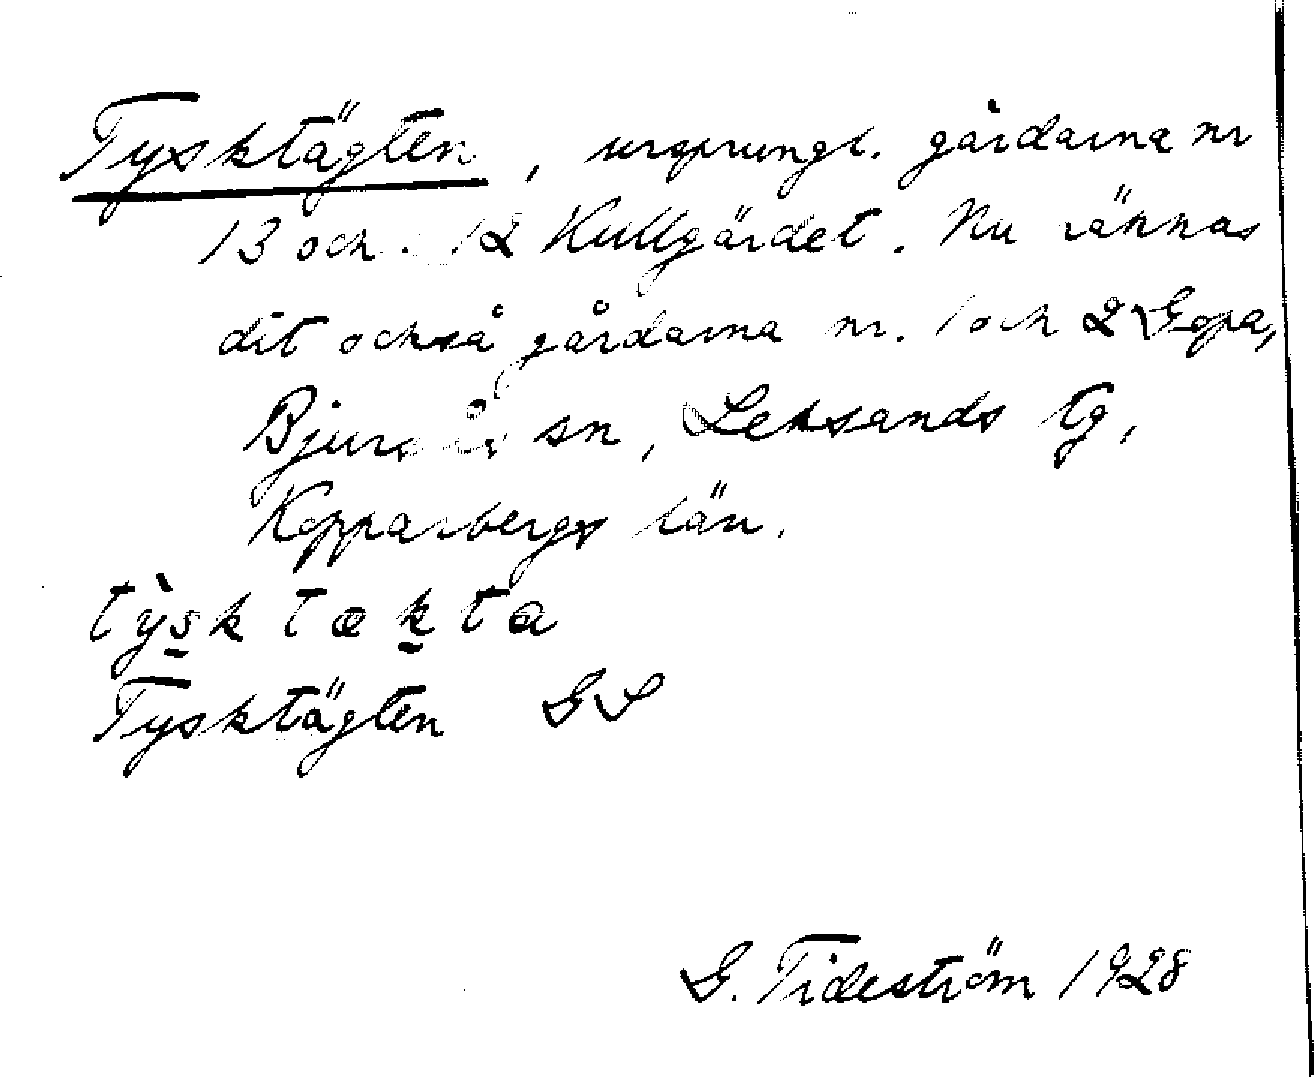 Tysktägten, ursprungl. gårdarna nr
13 och 12 Kullgärdet. Nu räknas
dit också gårdarna nr. 1 och 2 Gopa,
Bjursås sn, Leksands tg,
Kopparbergs län.
tỳsktækta
Tysktägten GS
G. Tideström 1928